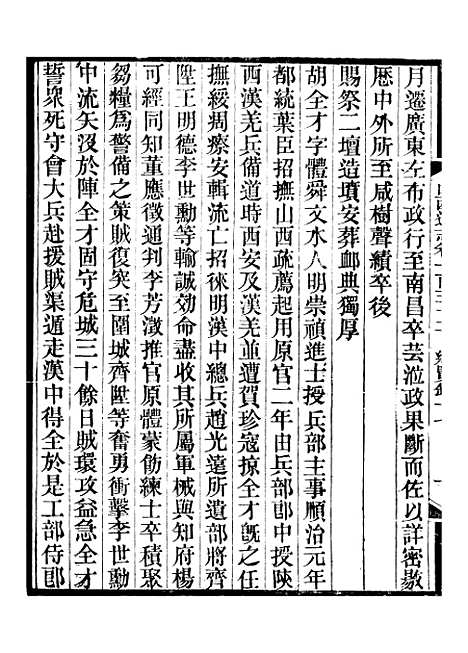 月遷廣東左布政行至南昌卒芸涖政果斷而佐以詳密敭
歷中外所至咸樹聲績卒後
賜祭二壇造墳安葬卹典獨厚
胡全才字體舜文水人明崇禎進士授兵部主事順治元年
都統葉臣招撫山西疏薦起用原官二年由兵部郎中授陝
西漢羌兵備道時西安及漢羌並遭賀珍寇掠全才旣之任
撫綏凋瘵安輯流亡招徠明漢中總兵趙光遠所遺部將齊
陞王明德李世勳等輸誠效命盡收其所屬軍械與知府楊
可經同知董應徵通判李芳澂推官原體蒙飭練士卒積聚
芻糧爲警備之策賊復突至圍城齊陞等奮勇衝擊李世勳
中流矢沒於陣全才固守危城三十餘日賊環攻益急全才
誓衆死守會大兵赴援賊渠遁走漢中得全於是工部侍郎